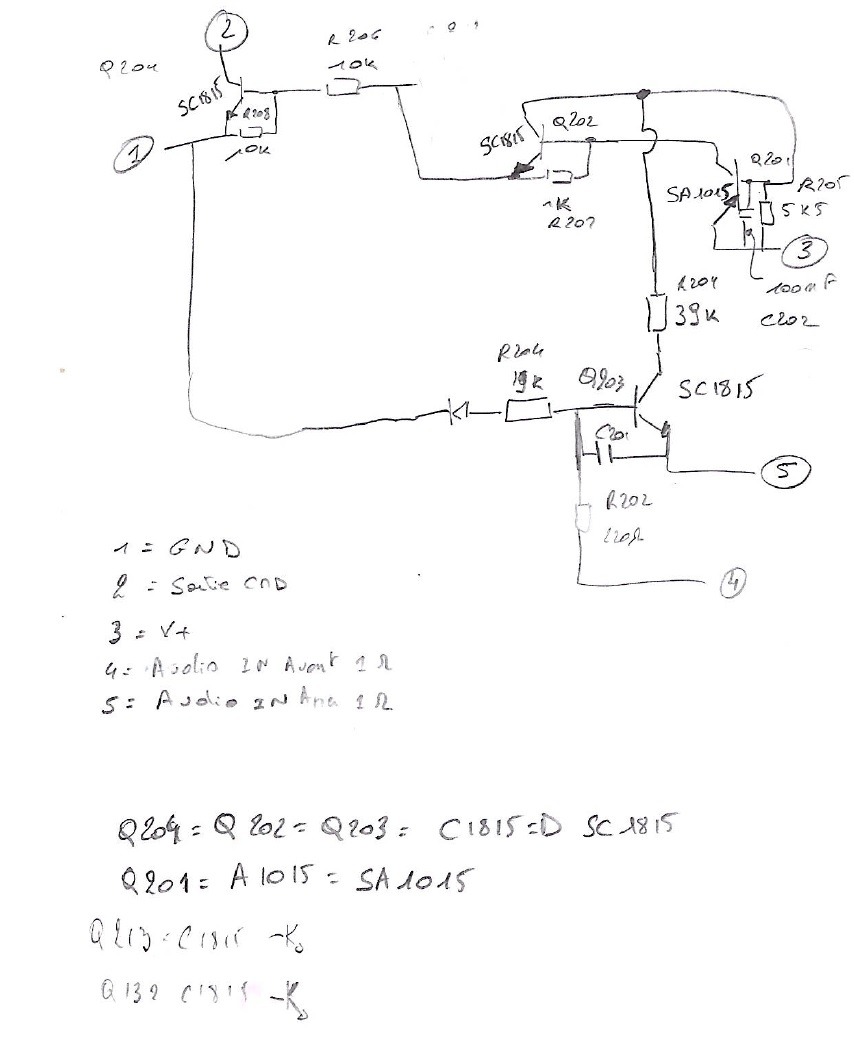 2
R 206
10K
Q204
SC1815
R208
10K
1
SC1815
Q202
1K
R207
Q201
SA1015
R205
5K5
3
100nF
C202
R204
39K
R204
Q203
SC1815
C201
5
R202
220Ω
4
1 = GND
2 = Sortie CMD
3 = V+
4 = Audio IN Avant 1 Ω
5 = Audio IN 1 Ω
Q204 = Q202 = Q203 = C1815 = D SC1815
Q201 = A1015 = SA1015
Q213 = C1815
Q132 C1815